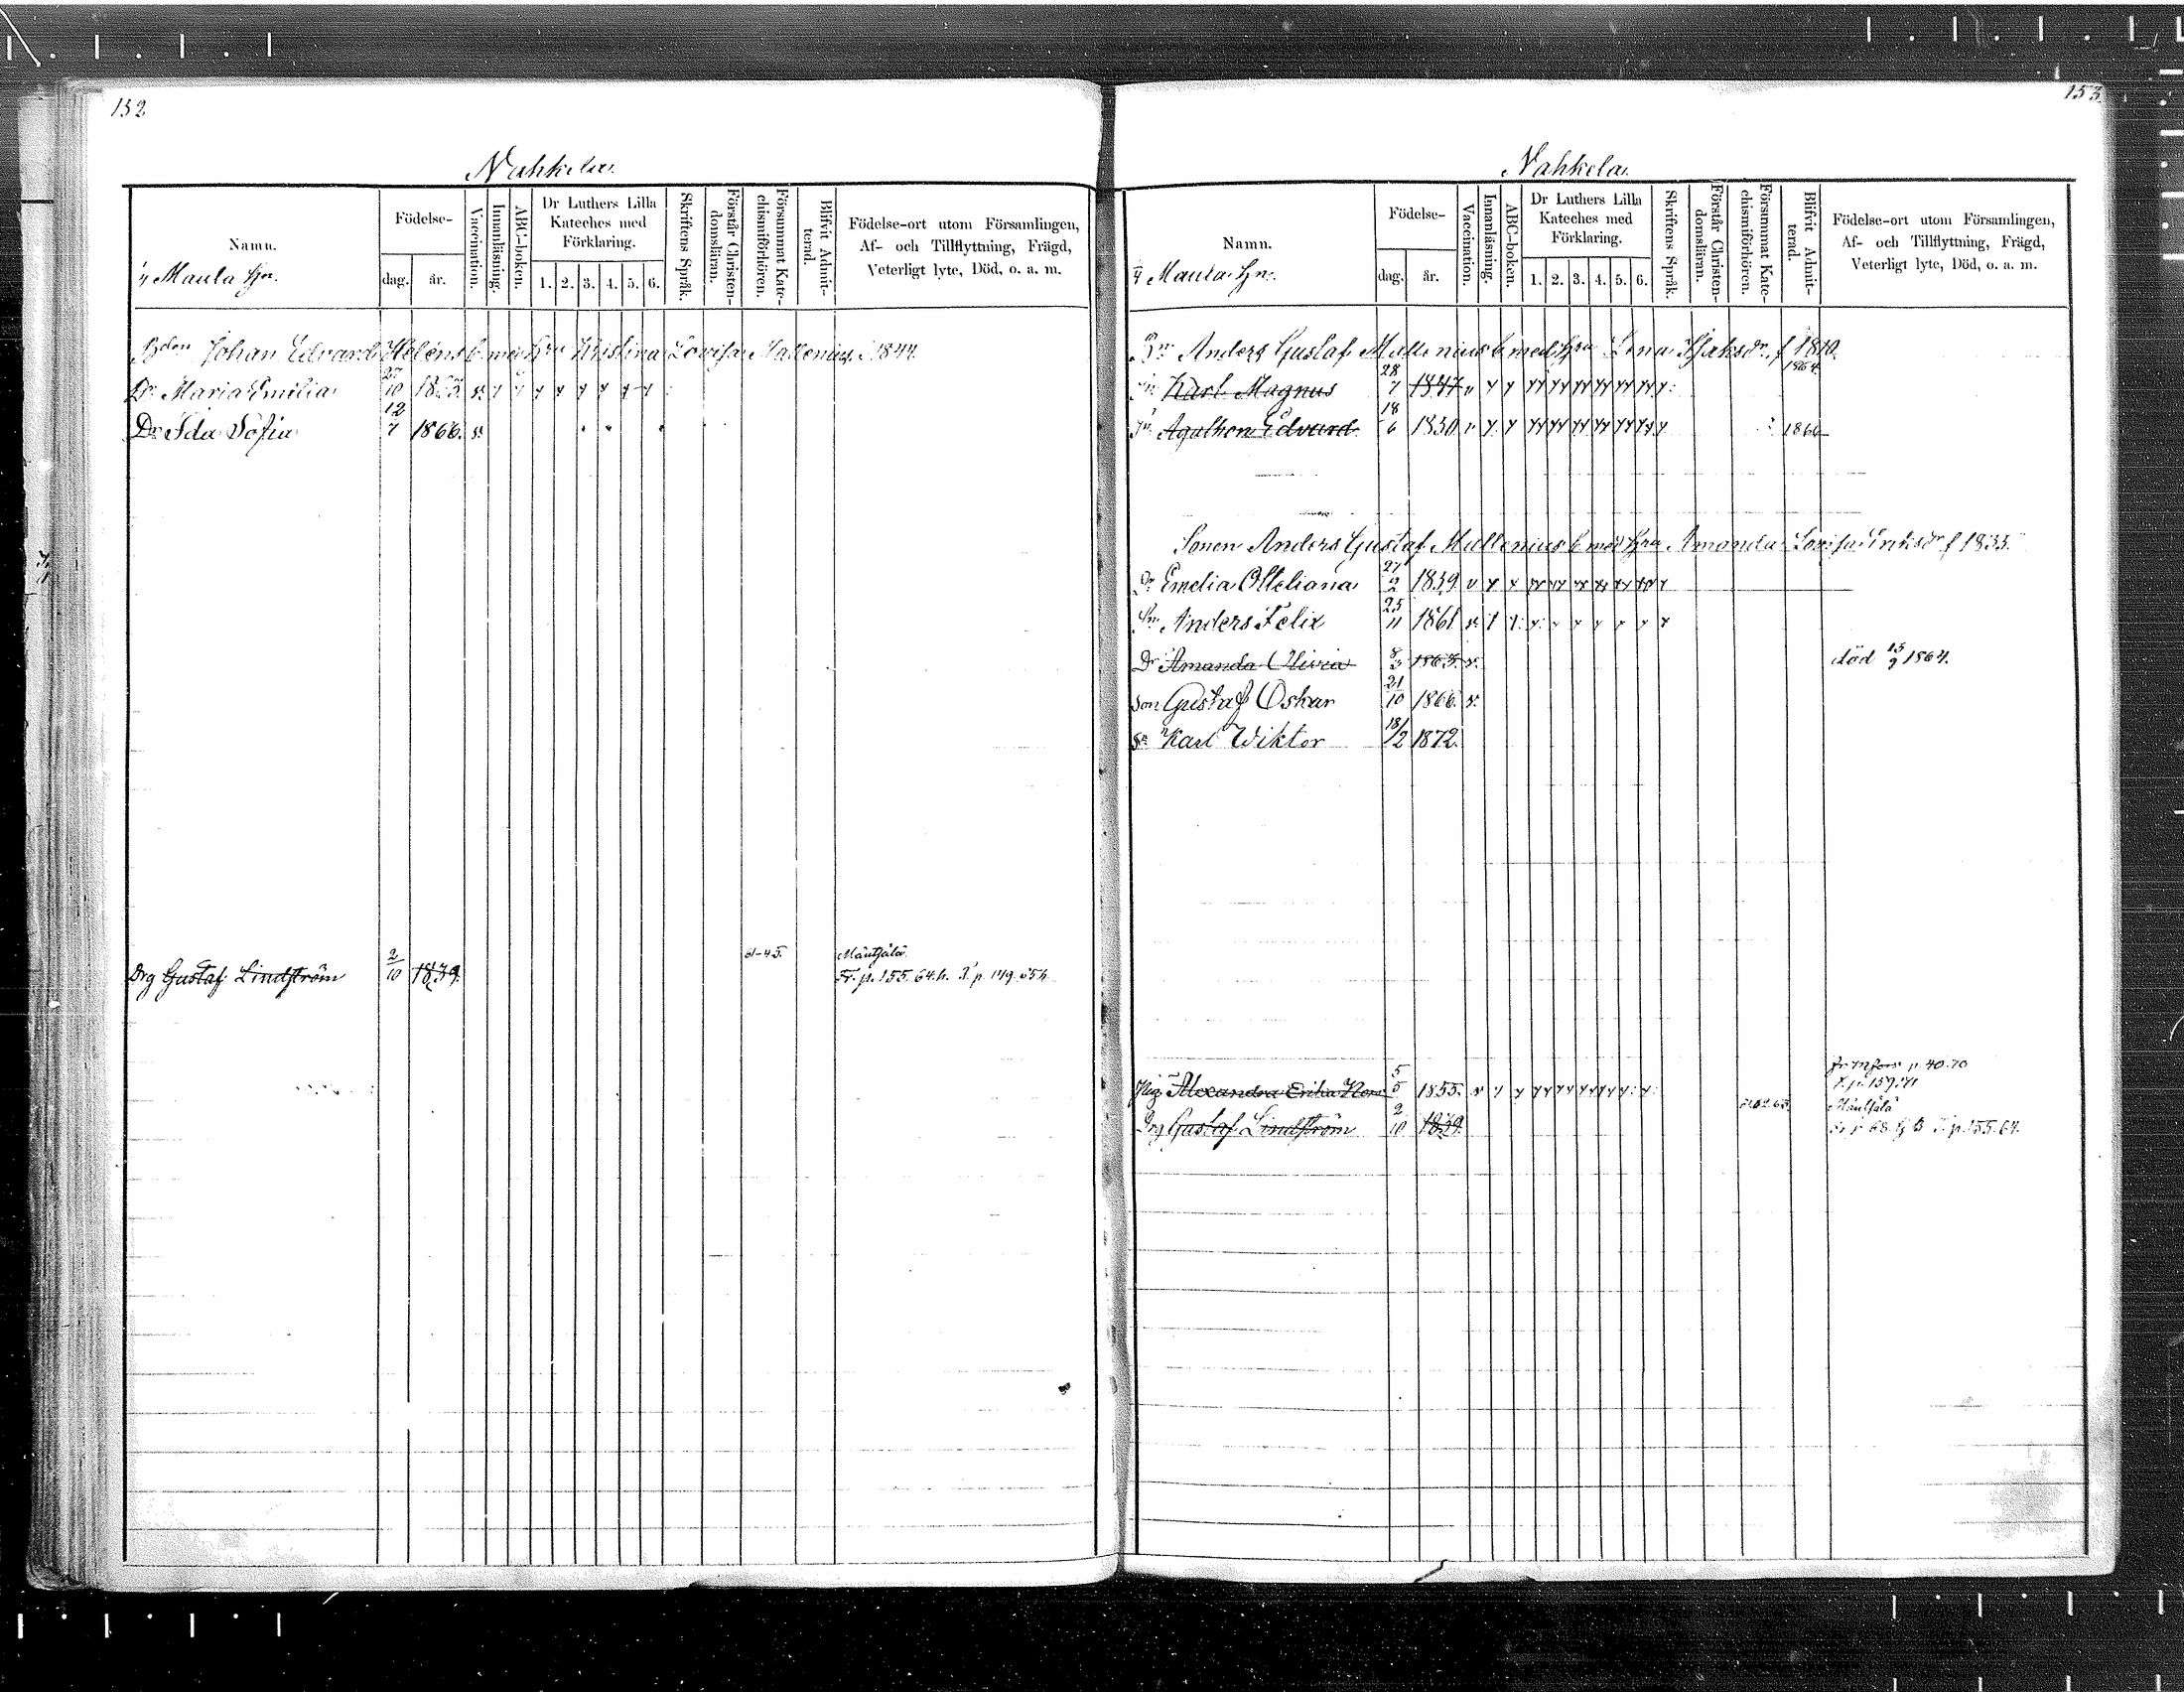 152
Nahkela.
Namn.
Maula Hn.
Födelse-
dag.
år.
Vaccination.
Innanläsning.
ABC-boken.
Dr Luthers Lilla Kateches med Förklaring.
1. 2. 3. 4. 5. 6.
Skriftens Språk.
Förstår Christendomsläran.
Försummat Katechismiförhören.
Blifvit Admitterad.
Födelse-ort utom Församlingen,
Af- och Tillflyttning, Frägd,
Veterligt lyte, Död, o. a. m.
Bdn Johan Edvard Heléns b. med Hru Kristina Lovisa Mallenius, f. 1844.
Dr Maria Emilia 27/10 1863.
Dr Ida Sofia 12/7 1866.
61-45. Mäntsälä
Drg Gustaf Lindström 2/10 1839. Fr. p. 155. 64.
153
Nahkela.
Namn.
Maula Hn.
Födelse-
dag.
år.
Vaccination.
Innanläsning.
ABC-boken.
Dr Luthers Lilla Kateches med Förklaring.
1. 2. 3. 4. 5. 6.
Skriftens Språk.
Förstår Christendomsläran.
Försummat Katechismiförhören.
Blifvit Admitterad.
Födelse-ort utom Församlingen,
Af- och Tillflyttning, Frägd,
Veterligt lyte, Död, o. a. m.
Anders Gustaf Mallenius b med Hru Lena f 1810.
Karl Magnus 28/7 1847 1864.
Agathon Edvard 18/6 1850 1866
Sonen Anders Gustaf Mallenius b med Hru Amanda Lovisa Eriksdr f 1833.
Dr Emelia Otteliana 27/2 1859
Sn Anders Felix 25/11 1861
Dr Amanda Olivia 8/3 död 13/9 1864.
Son Gustaf Oskar 21/10 1866.
Sn Karl Wiktor 18/2 1872.
p. 40. 70
Pig Alexandra 5/5 1855. p. 159. 71
Mäntsälä
Drg Gustaf Lindström 2/10 1839. p. 155. 64.